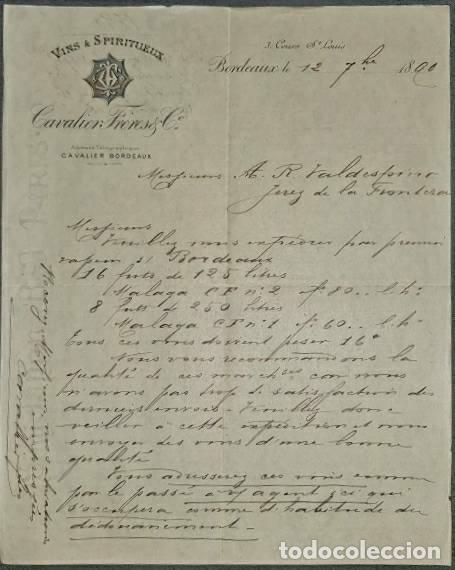 VINS & SPIRITUEUX
3, Cours St Louis
Bordeaux le 12 7bre 1890
Cavalier Frères & Co.
Adresse Télégraphique
CAVALIER BORDEAUX
Messieurs A. R. Valdespino
Jerez de la Frontera
Messieurs
Veuillez nous expédier par premier
vapeur s/ Bordeaux
16 futs de 125 litres
Malaga CF no 2 f. 80.. l. ho
8 futs de 250 litres
Malaga CF no 1 f. 60... l. ho
Tous ces vins doivent peser 16o
Nous vous recommandons la
qualité de ces marchses car nous
n'avons pas trop de satisfaction des
derniers envois. Veuillez donc
veiller à cette expédition et nous
envoyer des vins d'une bonne
qualité
Vous adresserez ces vins comme
par le passé à v/ agent ici qui
s'occupera comme d'habitude du
dédouanement.
todocoleccion